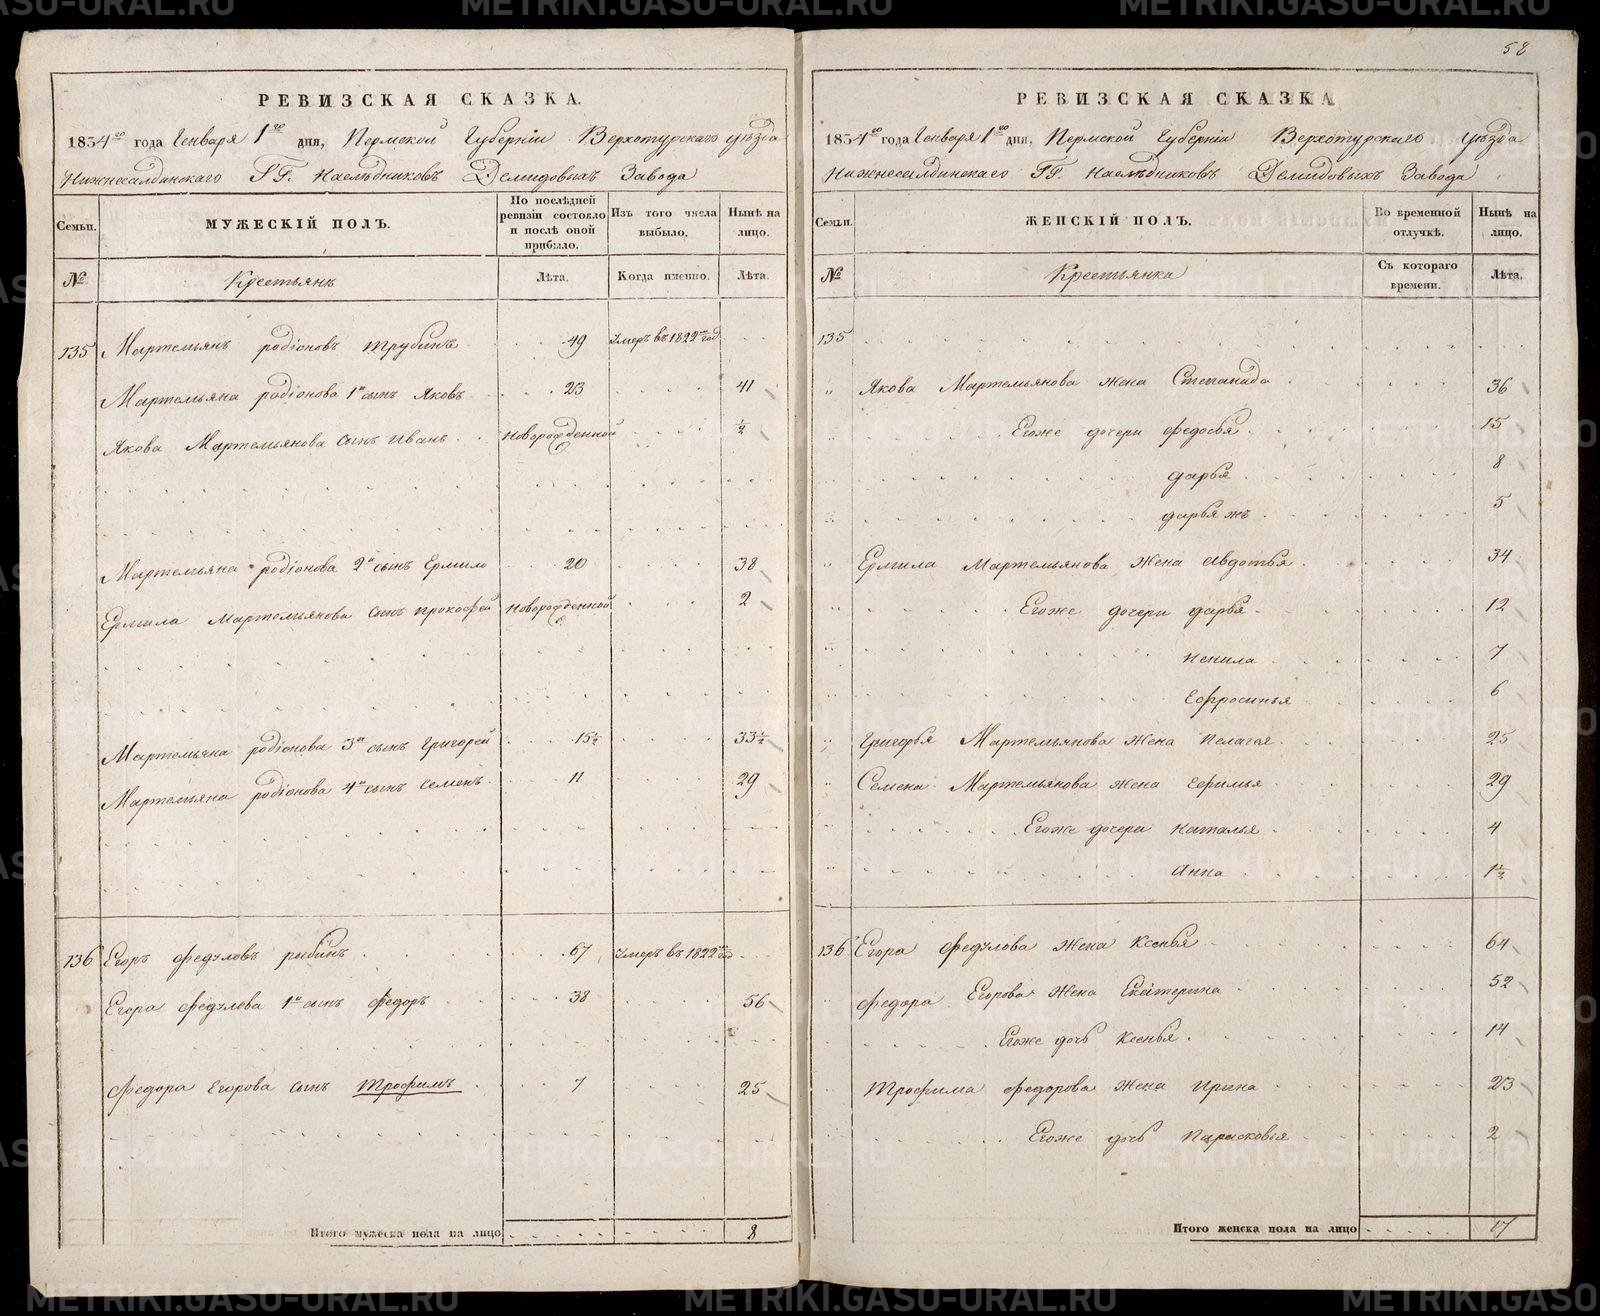 РЕВИЗСКАЯ СКАЗКА.
1834го года Генваря 1го дня, Пермской Губернiи Верхотурскаго уѣзда
Нижнесалдинскаго ГГ. Наслѣдниковъ Демидовыхъ Завода
Семьи.
МУЖЕСКIЙ ПОЛЪ.
По послѣдней ревизiи состояло и послѣ оной прибыло.
Изъ того числа выбыло.
Нынѣ на лицо.
№
Крестьянъ
Лѣта.
Когда именно.
Лѣта.
135 Мартемьянъ родiоновъ трубинъ 49 Умеръ въ 1822мъ год
Мартемьяна родiонова 1й сынъ Яковъ 23 41
Якова Мартемьянова сынъ Иванъ новорожденной ½
Мартемьяна родiонова 2й сынъ Ермило 20 38
Ермила Мартемьянова сынъ прокофей новорожденной 2
Мартемьяна родiонова 3й сынъ григорей 15½ 33½
Мартемьяна родiонова 4й сынъ семенъ 11 29
136 Егоръ федуловъ рябинъ 67 Умеръ въ 1822мъ год
Егора федулова 1й сынъ федоръ 38 56
Федора Егорова сынъ трофимъ 7 25
Итого мужеска пола на лицо 8
58
РЕВИЗСКАЯ СКАЗКА
1834го года Генваря 1го дня, Пермской Губернiи Верхотурскаго уѣзда
Нижнесалдинскаго ГГ. Наслѣдниковъ Демидовыхъ Завода
Семьи.
ЖЕНСКIЙ ПОЛЪ.
Во временной отлучкѣ.
Нынѣ на лицо.
№
Крестьянка
Съ котораго времени.
Лѣта.
135
Якова Мартемьянова жена Степанида 36
Егоже дочери федосья 15
дарья 8
дарья жъ 5
Ермила Мартемьянова жена Авдотья 34
Егоже дочери дарья 12
ненила 7
Ефросинья 6
григорья Мартемьянова жена пелагея 25
Семена Мартемьянова жена Ефимья 29
Егоже дочери наталья 4
Анна 1½
136 Егора федулова жена Ксенья 64
Федора Егорова жена Екатерина 52
Егоже дочь Ксенья 14
Трофима федорова жена Ирина 23
Егоже дочь парасковья 2
Итого женска пола на лицо 17
METRIKI.GASO-URAL.RU